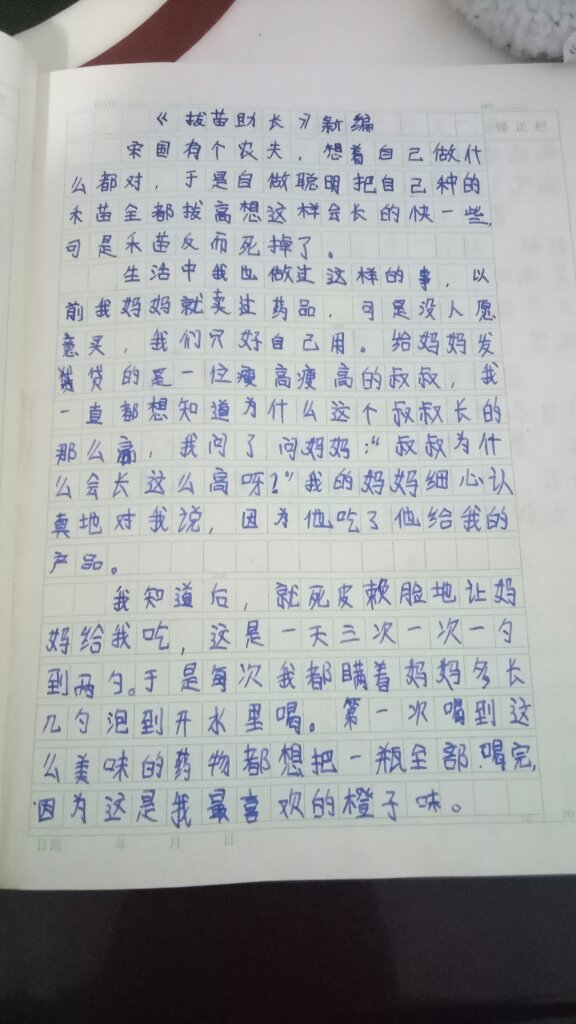 DATE
NO.
《拔苗助长》新编
修正栏
宋国有个农夫，想着自己做什
么都对，于是自做聪明把自己种的
禾苗全都拔高想这样会长的快一些，
可是禾苗反而死掉了。
生活中我也做过这样的事，以
前我妈妈就卖过药品，可是没人愿
意买，我们只好自己用。给妈妈发
货的是一位瘦高瘦高的叔叔，我
一直都想知道为什么这个叔叔长的
那么高，我问了问妈妈：“叔叔为什
么会长这么高呀？”我的妈妈细心认
真地对我说，因为他吃了他给我的
产品。
我知道后，就死皮赖脸地让妈
妈给我吃，这是一天三次一次一勺
到两勺。于是每次我都瞒着妈妈多长
几勺泡到开水里喝。第一次喝到这
么美味的药物都想把一瓶全部喝完，
因为这是我最喜欢的橙子味。
日期： 年 月 日